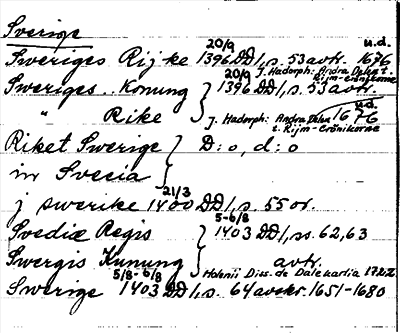 Sverige
Sweriges Rijke 20/9 1396 DD 1, s. 53 avtr. u.d. 1676
J. Hadorph: Andra Delen t. Rijm-Crönikorne
Sweriges Konung 20/9 1396 DD 1, s. 53 avtr.
" Rike J. Hadorph: Andra Delen t. Rijm-Crönikorne u.d. 1676
Riket Swerige D:o, d:o
in Svecia
j swerike 21/3 1400 DD 1, s. 55 or.
Svediæ Regis 5-6/8 1403 DD 1, ss. 62, 63
Swergis Kunung avtr.
Holenii Diss. de Dalekarlia
Swerige 5/8-6/8 1403 DD 1, s. 64 avskr. 1651-1680